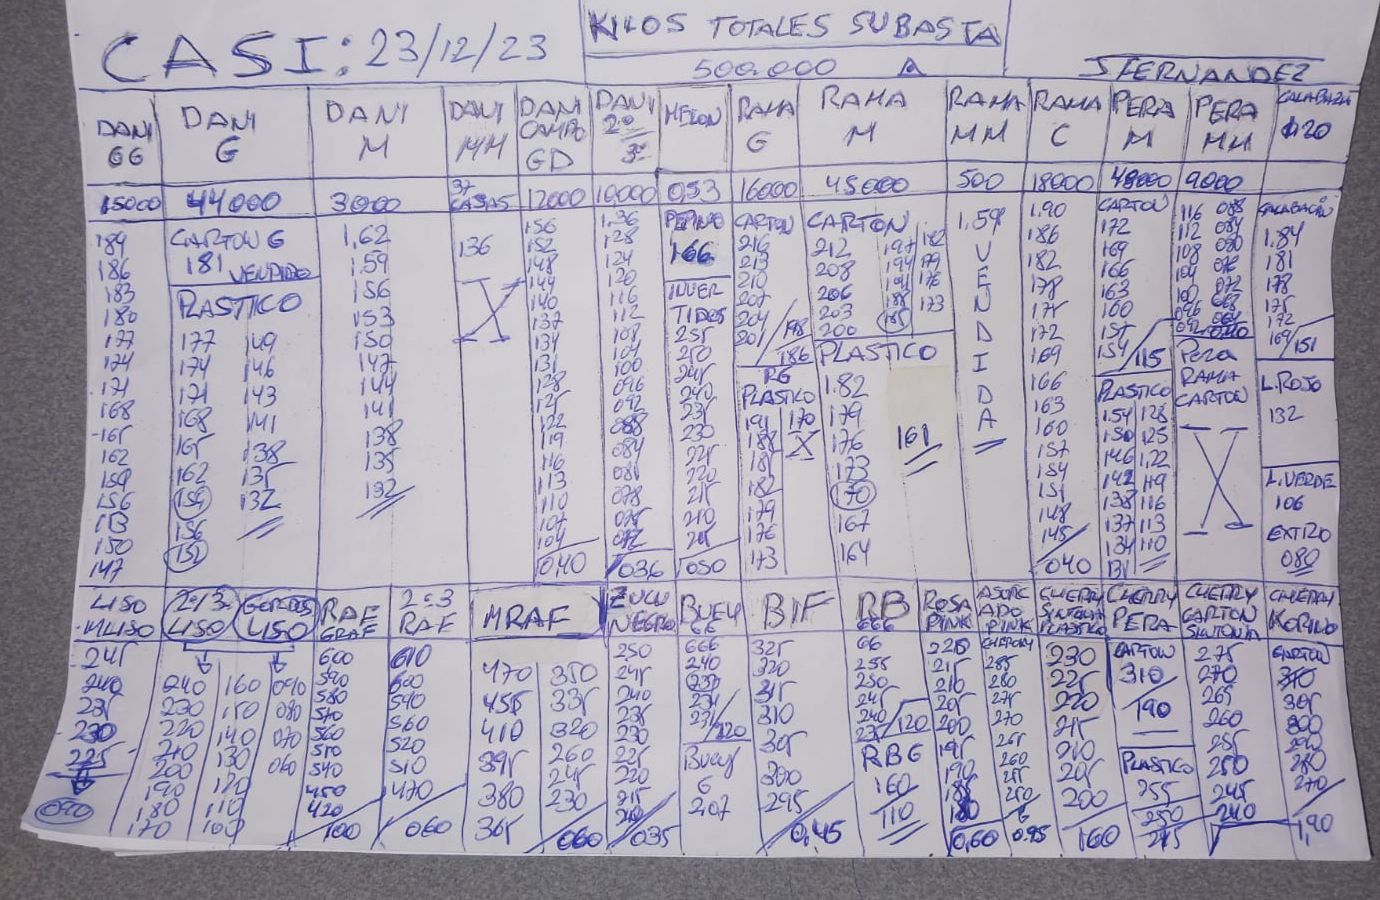 CASI: 23/12/23
KILOS TOTALES SUBASTA
500.000
J FERNANDEZ
DANI GG
15000
189
186
183
180
177
174
171
168
165
162
159
156
153
150
147
DANI G
44000
CARTON G
181 VENDIDO
PLASTICO
177 149
174 146
171 143
168 141
165 138
162 135
159 132
156
152
DANI M
3000
1.62
1.59
156
153
150
147
144
141
138
135
132
DANI MM
37 CAJAS
136
X
DANI CAMPO GD
12000
156
152
148
144
140
137
134
131
128
125
122
119
116
113
110
107
104
040
DANI 2ª 3ª
10.000
1.36
128
124
120
116
112
108
104
100
096
092
088
084
081
078
075
072
036
MELON
053
PEPINO
166
INVER
TIDOS
255
250
245
240
235
230
225
220
215
210
205
050
RAMA G
16000
CARTON
216
213
210
207
204
201
198
186
RG
PLASTICO
191 170
188 X
185
182
179
176
173
RAMA M
45000
CARTON
212 197 182
208 194 179
206 191 176
203 188 173
200 185
PLASTICO
1.82
179
176 161
173
170
167
164
RAMA MM
500
1.59
VENDIDA
RAMA C
18000
1.90
186
182
178
175
172
169
166
163
160
157
154
151
148
145
040
PERA M
CARTON
172
169
166
163
100
157
154
115
PLASTICO
1.54 128
150 125
146 1.22
142 119
138 116
137 113
134 110
131
PERA MM
9.000
116 088
112 084
108 080
104 076
100 072
096 068
092
PERA
RAMA
CARTON
X
CALABAZA
CALABACIN
1.84
181
178
175
172
169
151
L.ROJO
132
L.VERDE
106
EXTRO
080
LISO
MLISO
245
240
235
230
225
090
2ª/3ª LISO
GORDOS LISO
240 160 090
230 150 080
220 140 070
210 130 060
200 120
190 110
180 100
170
RAF GRAF
600
590
580
570
560
550
540
450
420
100
2ª 3 RAF
610
600
590
560
520
510
470
060
MRAF
470 350
455 335
410 320
395 260
380 245
365 230
060
ZUCU NEGRO
250
245
240
235
230
225
220
215
035
BUEY GG
666
240
237
234
231
120
BUEY
G
207
BIF
325
320
315
310
305
300
295
0,45
RB
GGG
GG
255
250
245
240
235
120
RBG
160
110
ROSA PINK
220
215
210
205
200
195
190
185
180
0,60
CHERRY
285
280
275
270
265
260
255
250
0.95
CHERRY
SINTONIA
PLASTICO
230
225
220
215
210
205
200
160
CHERRY PERA
CARTON
310
190
PLASTICO
255
250
245
CHERRY
CARTON
SINTONIA
275
270
265
260
255
250
245
240
CHERRY
CARTON
305
300
290
280
270
1,90